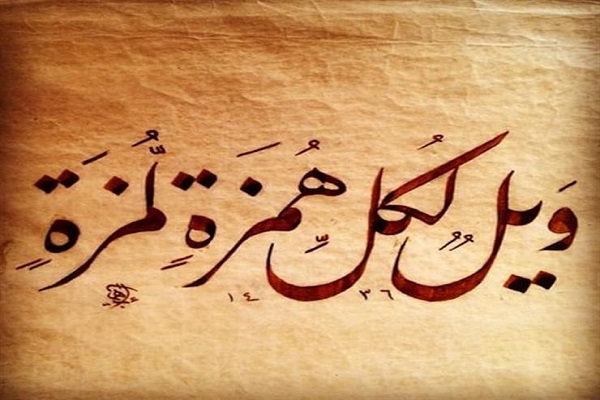 وَيْلٌ لِّكُلِّ هُمَزَةٍ لُّمَزَةٍ
١٤٣٦